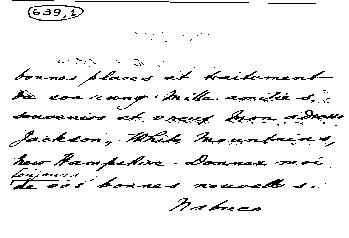 639,1
bonnes places et traitement
de son rang. Mille amitiés,
souvenirs et vœux. Mon adresse
Jackson, White Mountains,
New Hampshire. Donnez moi
toujours
de vos bonnes nouvelles.
Nabuco